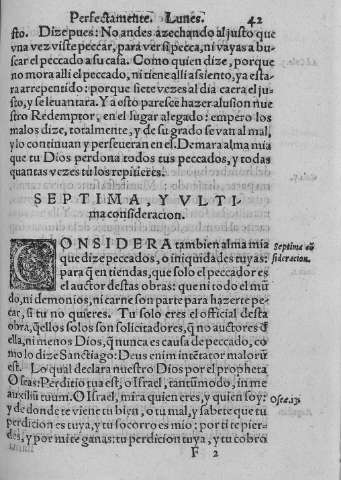 Perfectamente. Lunes. 42
sto. Dize pues: No andes azechando al justo que
vna vez viste peccar, para ver si pecca, ni vayas a bu-
scar el peccado a su casa. Como quien dize, porque
no mora alli el peccado, ni tiene alli assiento, ya esta-
ra arrepentido: porque siete vezes al dia caera el ju-
sto, y se leuantara. Y a esto paresce hazer alusion nue-
stro Redemptor, en el lugar alegado: empero los
malos dize, totalmente, y de su grado se van al mal,
y lo continuan y perseueran en el. De mara alma mia
que tu Dios perdona todos tus peccados, y todas
quantas vezes tu los repitieres.
SEPTIMA, Y VLTI
ma consideracion.
CONSIDERA tambien alma mia
que dize peccados, o iniquidades tuyas:
para q̃ entiendas, que solo el peccador es
el auctor destas obras: que ni todo el mũ
do, ni demonios, ni carne son parte para hazerte pe-
car, si tu no quieres. Tu solo eres el official desta
obra, q̃ ellos solos son solicitadores, q̃ no auctores đ
ella, ni menos Dios, q̃ nunca es causa de peccado, co
mo lo dize Sanctiago: Deus enim intẽtator malorũ
est. Lo qual declara nuestro Dios por el propheta
Oseas: Perditio tua est, o Israel, tantũmodo, in me
auxiliũ tuum. O Israel, mira quien eres, y quien soy:
y de donde te viene tu bien, o tu mal, y sabete que tu
perdicion es tuya, y tu socorro es mio: por ti te pier-
des, y por mi te ganas: tu perdicion tuya, y tu cobro
F 2
Septima cõ
sideracion.
Oseæ. 13.